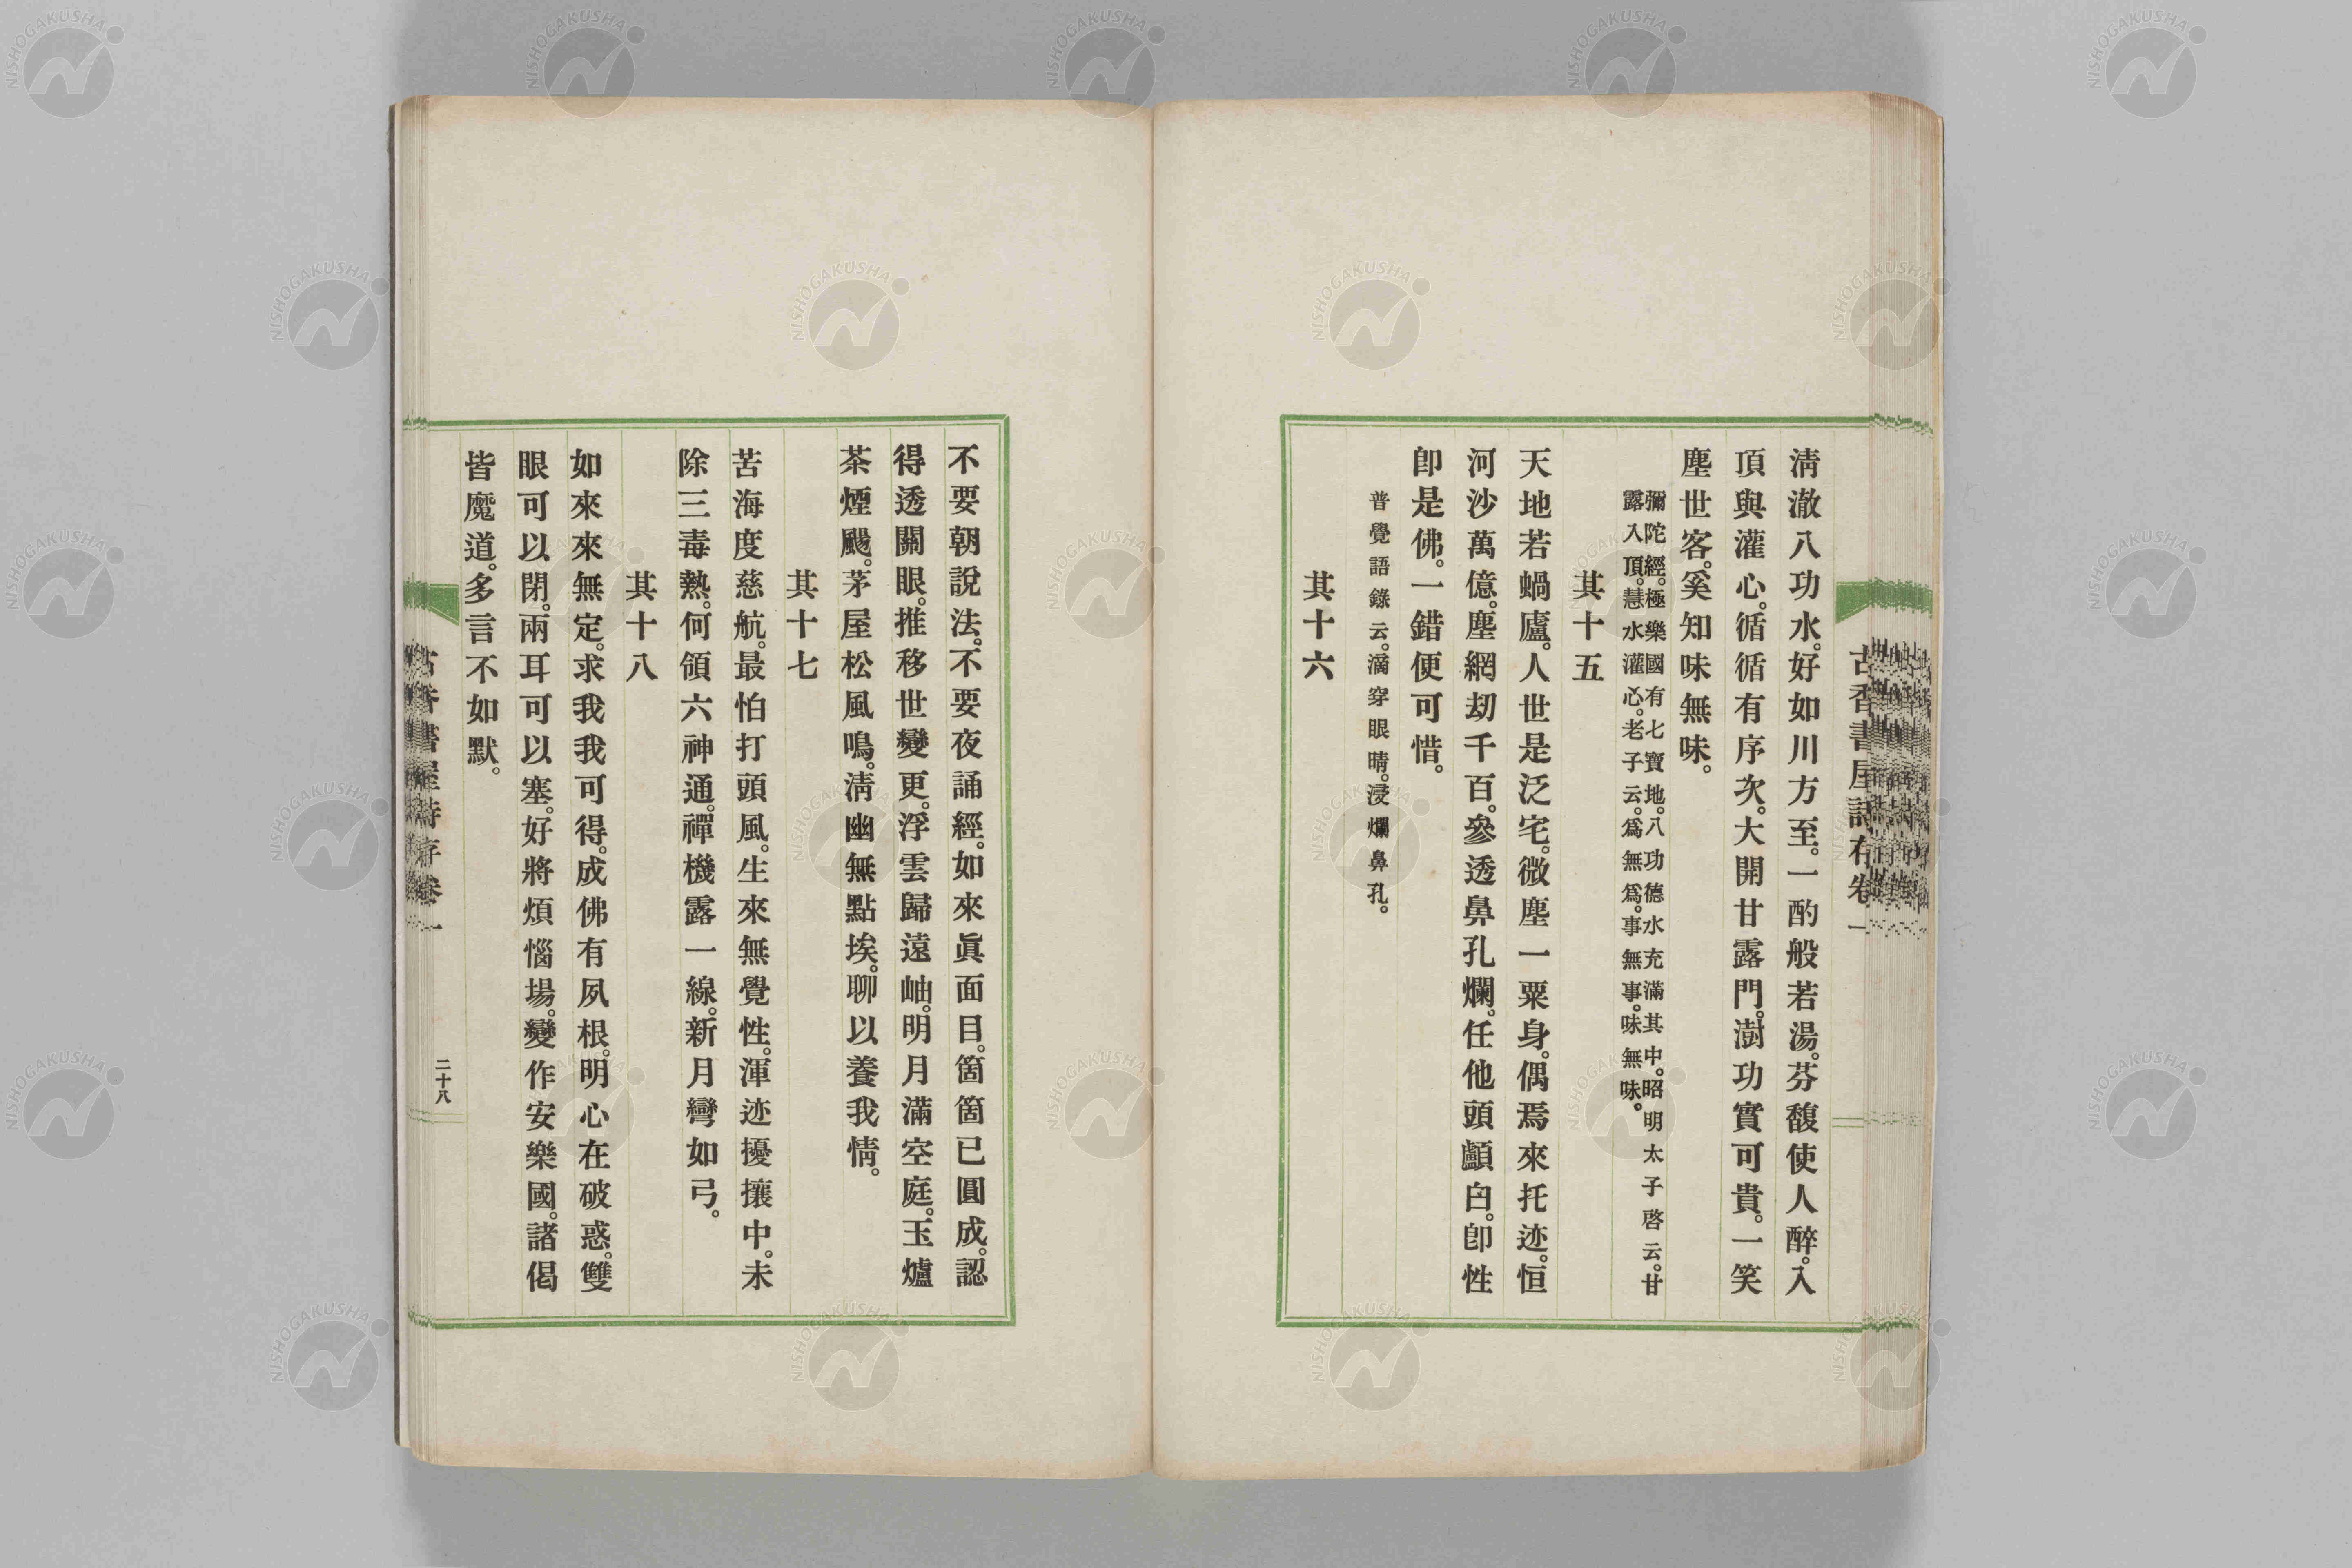 清澈八功水。好如川方至。一酌般若湯。芬馥使人醉。入
頂與灌心。循循有序次。大開甘露門。澍功實可貴。一笑
塵世客。奚知味無味。
彌陀經。極樂國有七寶地。八功德水充滿其中。昭明太子啓云。甘
露入頂。慧水灌心。老子云。爲無爲。事無事。味無味。
其十五
天地若蝸廬。人世是泛宅。微塵一粟身。偶焉來托迹。恒
河沙萬億。塵網劫千百。參透鼻孔爛。任他頭顱白。卽性
卽是佛。一錯便可惜。
普覺語錄云。滴穿眼睛。浸爛鼻孔。
其十六
不要朝說法。不要夜誦經。如來眞面目。箇箇已圓成。認
得透關眼。推移世變更。浮雲歸遠岫。明月滿空庭。玉爐
茶煙颺。茅屋松風鳴。淸幽無點埃。聊以養我情。
其十七
苦海度慈航。最怕打頭風。生來無覺性。渾迹擾攘中。未
除三毒熱。何領六神通。禪機露一線。新月彎如弓。
其十八
如來來無定。求我我可得。成佛有夙根。明心在破惑。雙
眼可以閉。兩耳可以塞。好將煩惱場。變作安樂國。諸偈
皆魔道。多言不如默。
古香書屋詩存卷一
二十八
NISHOGAKUSHA